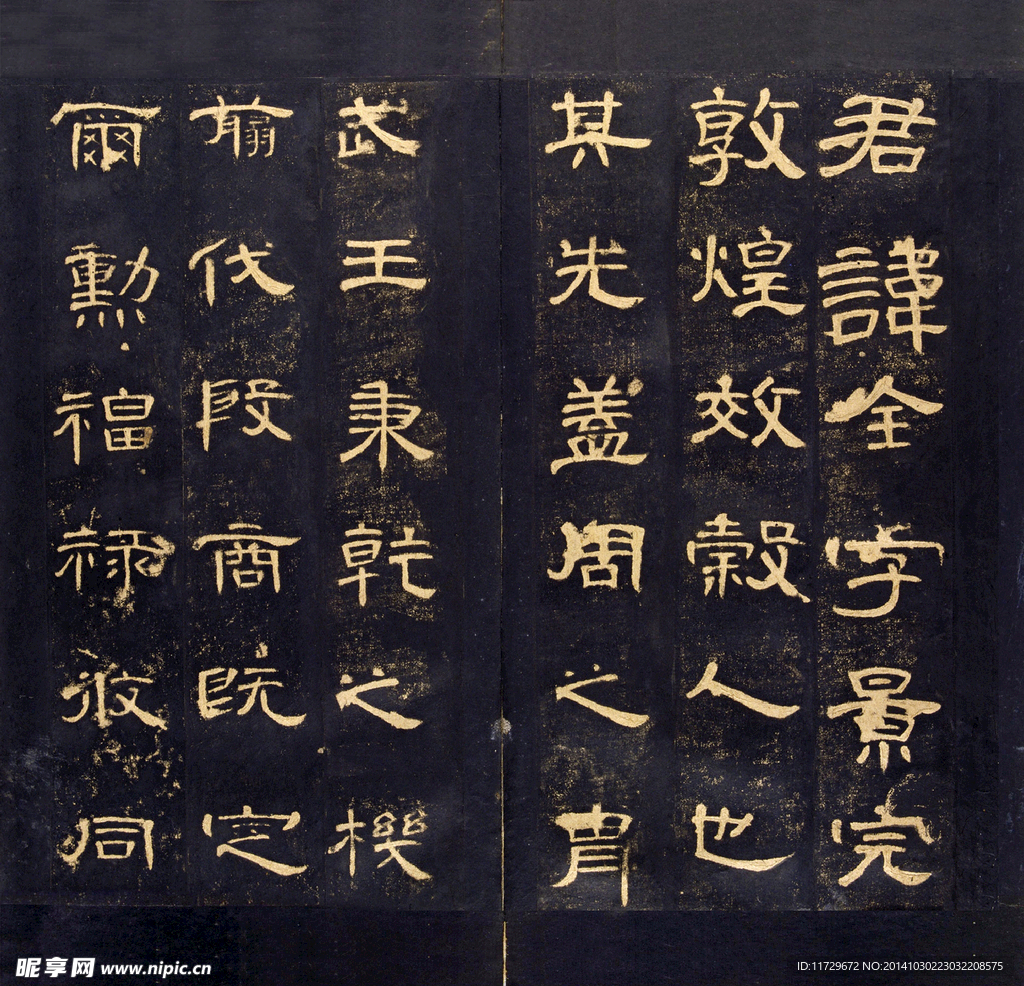 君諱全字景完
敦煌效穀人也
其先蓋周之胄
武王秉乾之機
翦伐殷商既定
爾勳福祿攸同
昵享网 www.nipic.cn
ID:11729672 NO:20141030223032208575